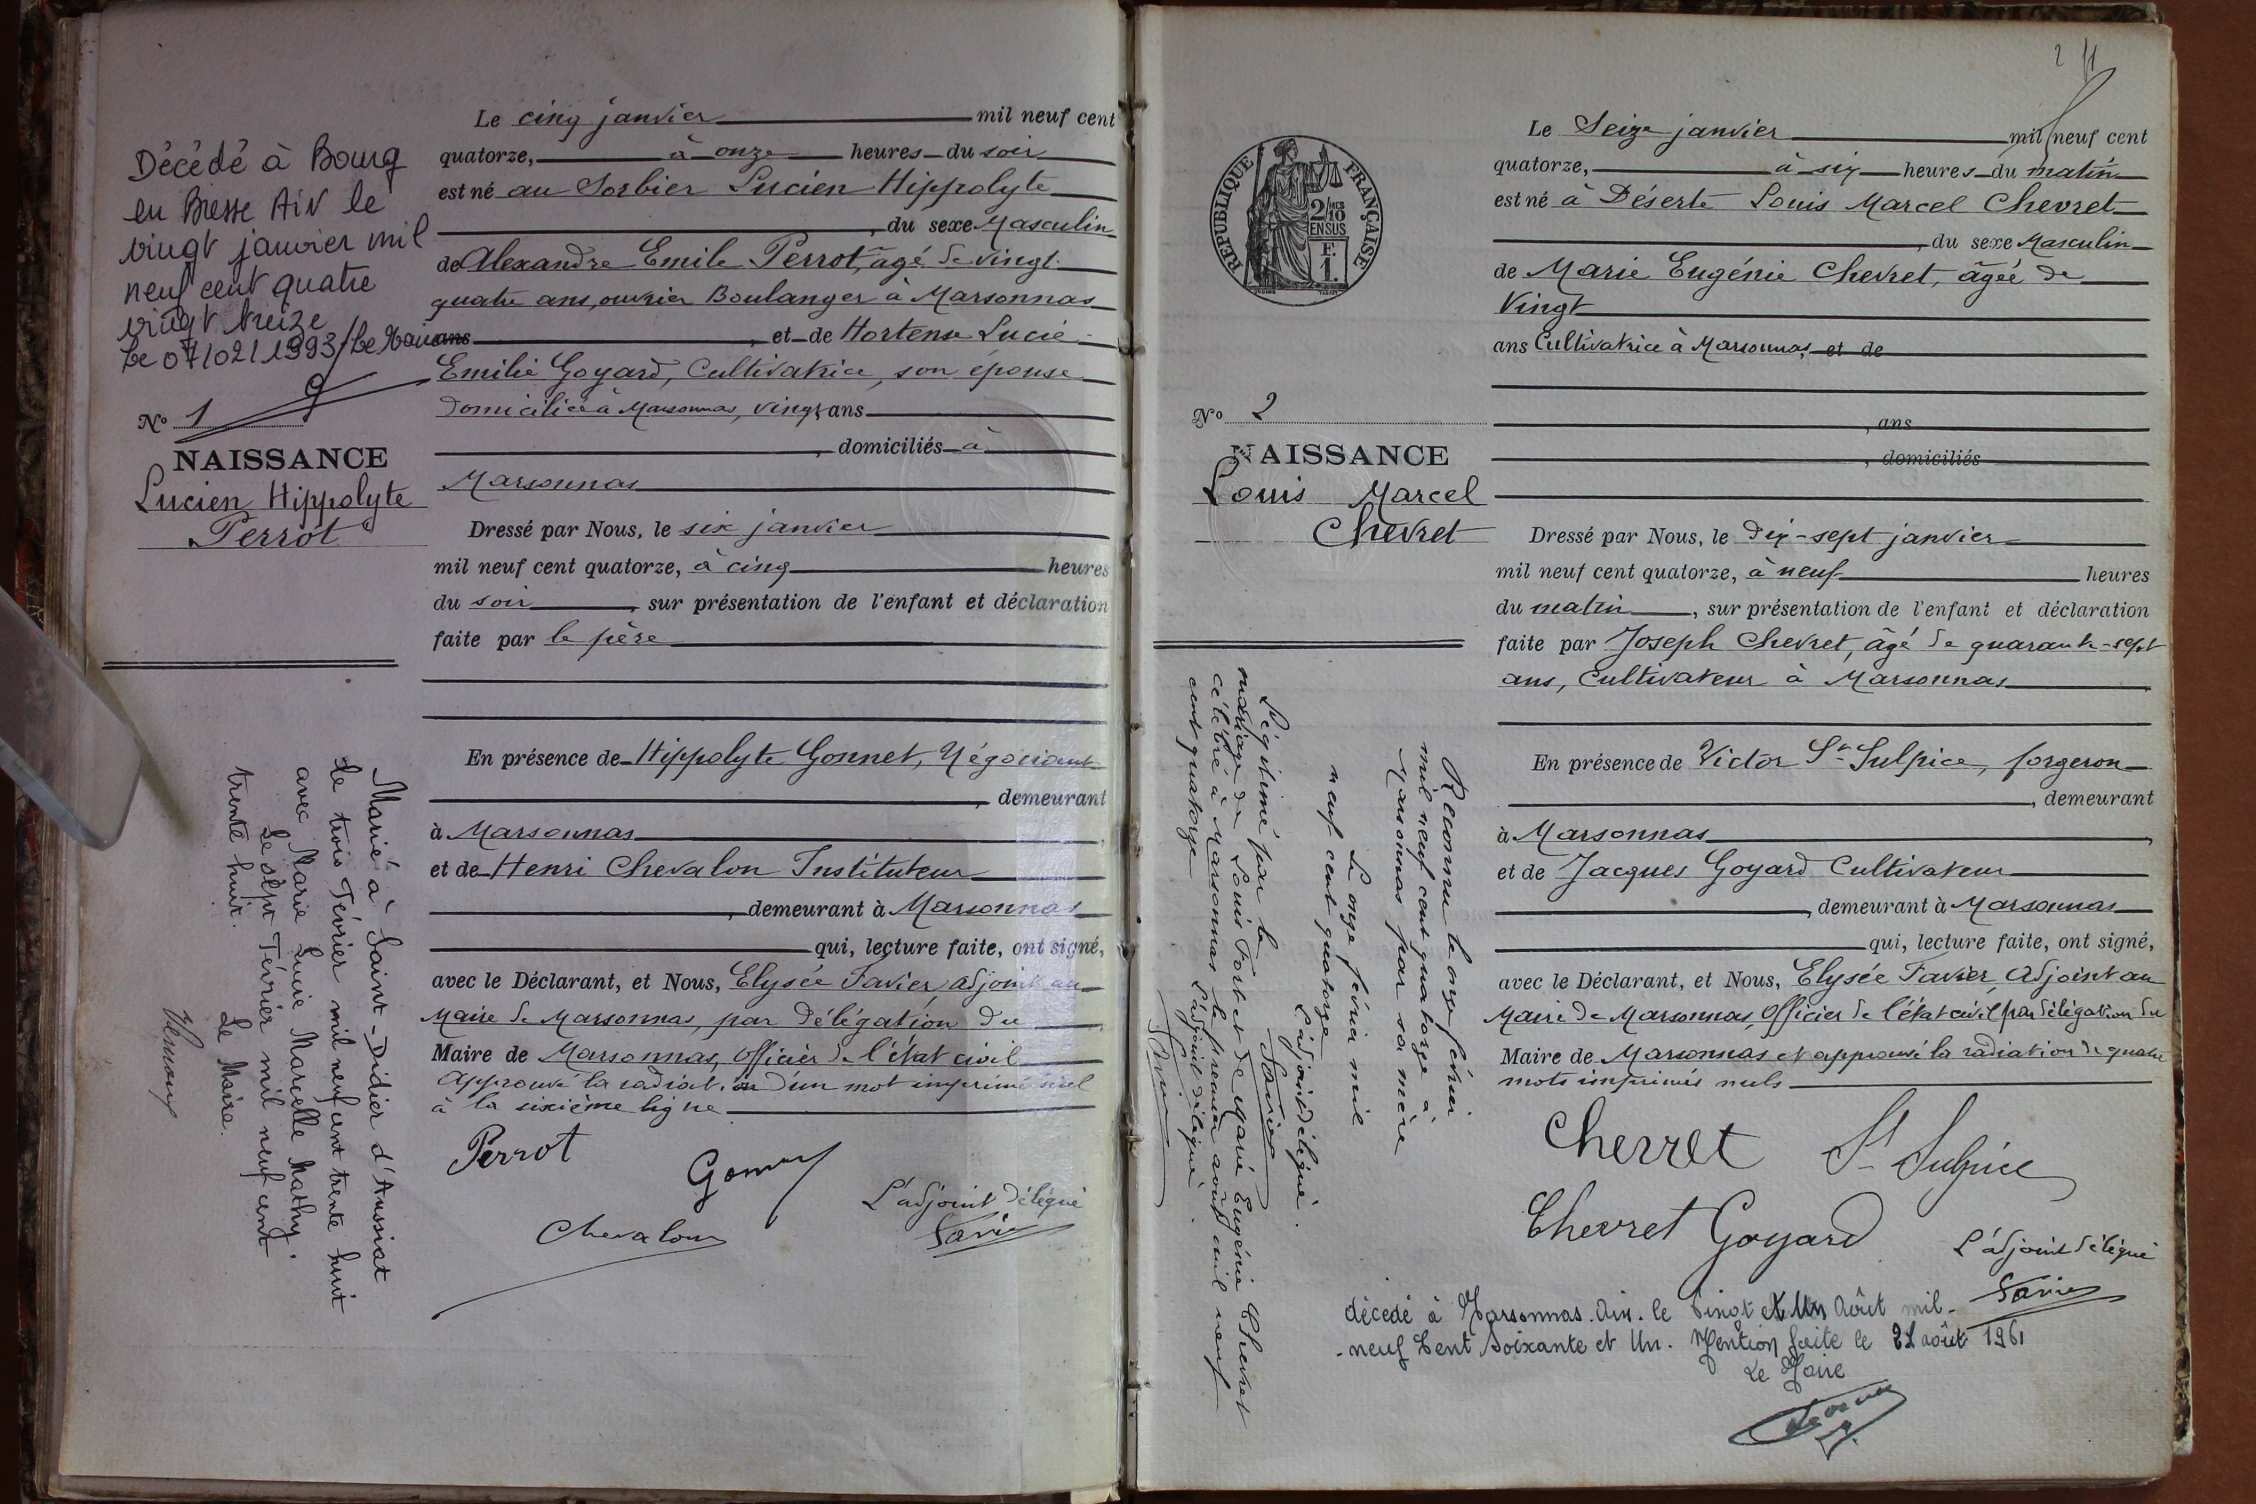 Décédé à Bourg
en Bresse Ain le
vingt janvier mil
neuf cent quatre
vingt treize
Le 07/02/1993/Le Maire
N° 1
NAISSANCE
Lucien Hippolyte
Perrot
Marié à Saint-Didier d'Aussiat
le trois Février mil neuf cent trente huit
avec Marie Lucie Marcelle Mathy.
Le sept Février mil neuf cent
trente huit.
Le Maire.
Le cinq janvier mil neuf cent
quatorze, à onze heures du soir
est né au Sorbier Lucien Hippolyte
, du sexe Masculin
de Alexandre Emile Perrot, âgé de vingt
quatre ans, ouvrier Boulanger à Marsonnas
ans , et de Hortense Lucie
Emilie Goyard, Cultivatrice, son épouse
domiciliée à Marsonnas, vingt ans
, domiciliés à
Marsonnas
Dressé par Nous, le six janvier
mil neuf cent quatorze, à cinq heures
du soir , sur présentation de l'enfant et déclaration
faite par le père
En présence de Hippolyte Gonnet, Négociant
, demeurant
à Marsonnas
et de Henri Chevalon Instituteur
, demeurant à Marsonnas
qui, lecture faite, ont signé,
avec le Déclarant, et Nous, Elysée Favier, adjoint au
Maire de Marsonnas, par délégation du
Maire de Marsonnas, Officier de l'état civil
Approuvé la radiation d'un mot imprimé nul
à la sixième ligne
Perrot
Gonnet
Chevalon
L'adjoint délégué
Favier
2
RÉPUBLIQUE FRANÇAISE
2/10
EN SUS
F.
1.
N° 2
NAISSANCE
Louis Marcel
Chevret
Reconnu le onze février
mil neuf cent quatorze à
Marsonnas par sa mère
Le onze février mil
neuf cent quatorze
L'adjoint délégué.
Favier
Légitimé par le
mariage de Louis Fort et de Marie Eugénie Chevret
célébré à Marsonnas le premier août mil neuf
cent quatorze
L'adjoint délégué.
Favier
Le Seize janvier mil neuf cent
quatorze, à six heures du matin
est né à Déserte Louis Marcel Chevret
, du sexe Masculin
de Marie Eugénie Chevret, âgée de
Vingt
ans Cultivatrice à Marsonnas, et de
, ans
, domiciliés
Dressé par Nous, le dix-sept janvier
mil neuf cent quatorze, à neuf heures
du matin , sur présentation de l'enfant et déclaration
faite par Joseph Chevret, âgé de quarante-sept
ans, Cultivateur à Marsonnas
En présence de Victor St-Sulpice, forgeron
, demeurant
à Marsonnas
et de Jacques Goyard Cultivateur
, demeurant à Marsonnas
qui, lecture faite, ont signé,
avec le Déclarant, et Nous, Elysée Favier, Adjoint au
Maire de Marsonnas, Officier de l'état civil par délégation du
Maire de Marsonnas et approuvé la radiation de quatre
mots imprimés nuls
Chevret St Sulpice
Chevret Goyard
L'adjoint délégué
Favier
décédé à Marsonnas. Ain. le Vingt et Un Août mil-
-neuf Cent Soixante et Un. Mention faite le 21 août 1961
Le Maire